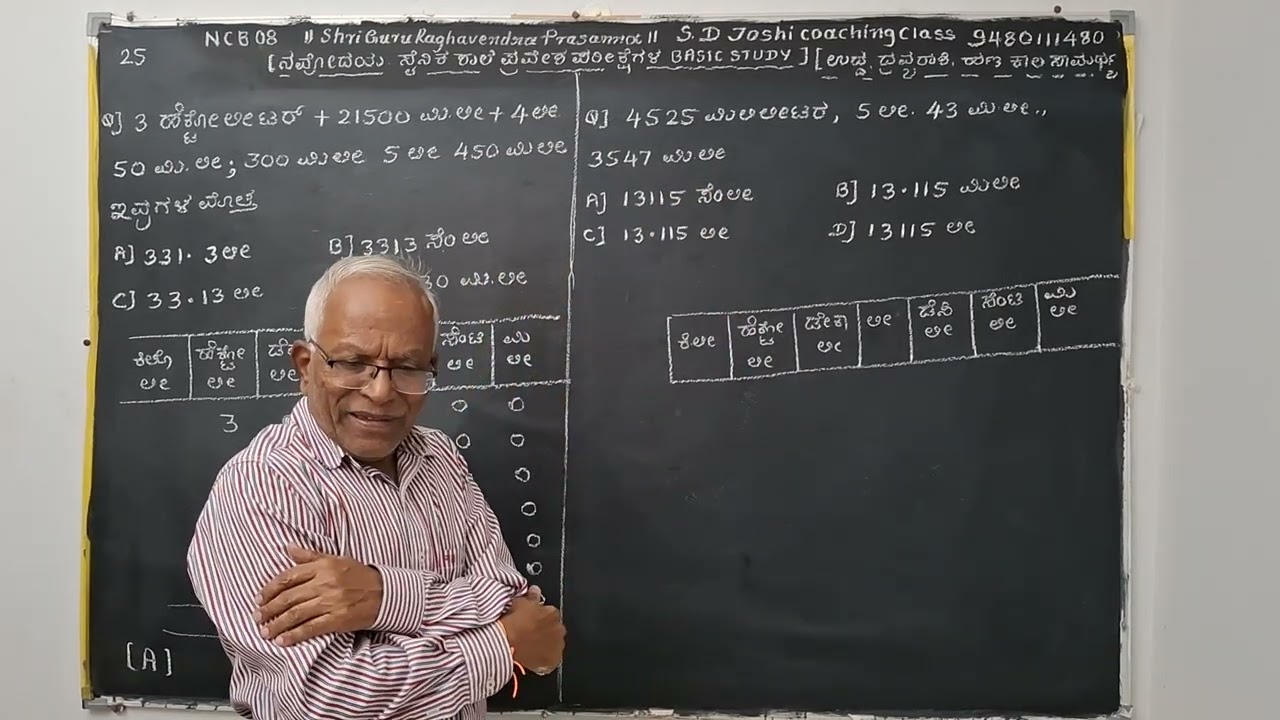 25
NCB08 || Shri Guru Raghavendra Prasanna || S.D Joshi coaching Class 9480111480
[ನವೋದಯ ಸೈನಿಕ ಶಾಲೆ ಪ್ರವೇಶ ಪರೀಕ್ಷೆಗಳ BASIC STUDY] [ಉದ್ದ, ದ್ರವ್ಯರಾಶಿ, ಹಣ ಕಾಲ ಸಾಮರ್ಥ್ಯ
Q] 3 ಹೆಕ್ಟೋಲೀಟರ್ + 21500 ಮಿ.ಲೀ + 4ಲೀ
50 ಮಿ.ಲೀ; 300 ಮಿಲೀ 5 ಲೀ 450 ಮಿಲೀ
ಇವುಗಳ ಮೊತ್ತ
A] 331.3ಲೀ B] 3313 ಸೆಂ ಲೀ
C] 33.13 ಲೀ 30 ಮಿ.ಲೀ
ಕಿಲೋ ಲೀ ಹೆಕ್ಟೋ ಲೀ ಸೆಂಟಿ ಲೀ ಮಿ ಲೀ
3 0 0
0 0
0
0
0
0
[A]
Q] 4525 ಮಿಲಿಲೀಟರ, 5 ಲೀ. 43 ಮಿ.ಲೀ.,
3547 ಮಿ.ಲೀ
A] 13115 ಸೆಂಲೀ B] 13.115 ಮಿಲೀ
C] 13.115 ಲೀ D] 13115 ಲೀ
ಕಿಲೀ ಹೆಕ್ಟೋ ಲೀ ಡೇಕಾ ಲೀ ಲೀ ಡೆಸಿ ಲೀ ಸೆಂಟಿ ಲೀ ಮಿ ಲೀ